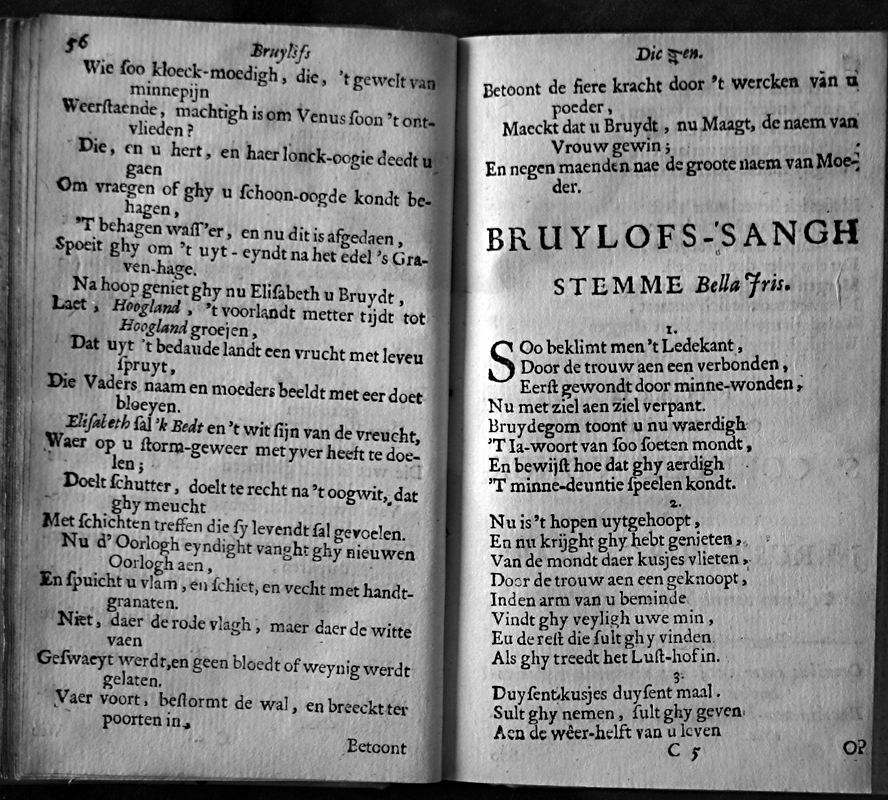 56
Bruylofs
Wie ſoo kloeck-moedigh, die, 't gewelt van
minnepijn
Weerſtaende, machtigh is om Venus ſoon 't ont-
vlieden?
Die, en u hert, en haer lonck-oogie deedt u
gaen
Om vraegen of ghy u ſchoon-oogde kondt be-
hagen,
'T behagen waſſ'er, en nu dit is afgedaen,
Spoeit ghy om 't uyt-eyndt na het edel 's Gra-
ven-hage.
Na hoop geniet ghy nu Eliſabeth u Bruydt,
Laet, Hoogland, 't voorlandt metter tijdt tot
Hoogland groejen,
Dat uyt 't bedaude landt een vrucht met leven
ſpruyt,
Die Vaders naam en moeders beeldt met eer doet
bloeyen.
Eliſabeth ſal 'k Bedt en 't wit ſijn van de vreucht,
Waer op u ſtorm-geweer met yver heeft te doe-
len;
Doelt ſchutter, doelt te recht na 't oogwit, dat
ghy meucht
Met ſchichten treffen die ſy levendt ſal gevoelen.
Nu d' Oorlogh eyndight vanght ghy nieuwen
Oorlogh aen,
En ſpuicht u vlam, en ſchiet, en vecht met handt-
granaten.
Niet, daer de rode vlagh, maer daer de witte
vaen
Geſwaeyt werdt, en geen bloedt of weynig werdt
gelaten.
Vaer voort, beſtormt de wal, en breeckt ter
poorten in,
Betoont
Betoont de fiere kracht door 't wercken van u
poeder,
Maeckt dat u Bruydt, nu Maagt, de naem van
Vrouw gewin;
En negen maenden nae de groote naem van Moe-
der.
BRUYLOFS-SANGH
STEMME Bella Iris.
1.
Soo beklimt men 't Ledekant,
Door de trouw aen een verbonden,
Eerſt gewondt door minne-wonden,
Nu met ziel aen ziel verpant.
Bruydegom toont u nu waerdigh
'T Ia-woort van ſoo ſoeten mondt,
En bewijſt hoe dat ghy aerdigh
'T minne-deuntie ſpeelen kondt.
2.
Nu is 't hopen uytgehoopt,
En nu krijght ghy hebt genieten,
Van de mondt daer kusjes vlieten,
Door de trouw aen een geknoopt,
Inden arm van u beminde
Vindt ghy veyligh uwe min,
Eu de reſt die ſult ghy vinden
Als ghy treedt het Luſt-hof in.
3.
Duyſent kusjes duyſent maal.
Sult ghy nemen, ſult ghy geven
Aen de wêer-helft van u leven
C 5
Op